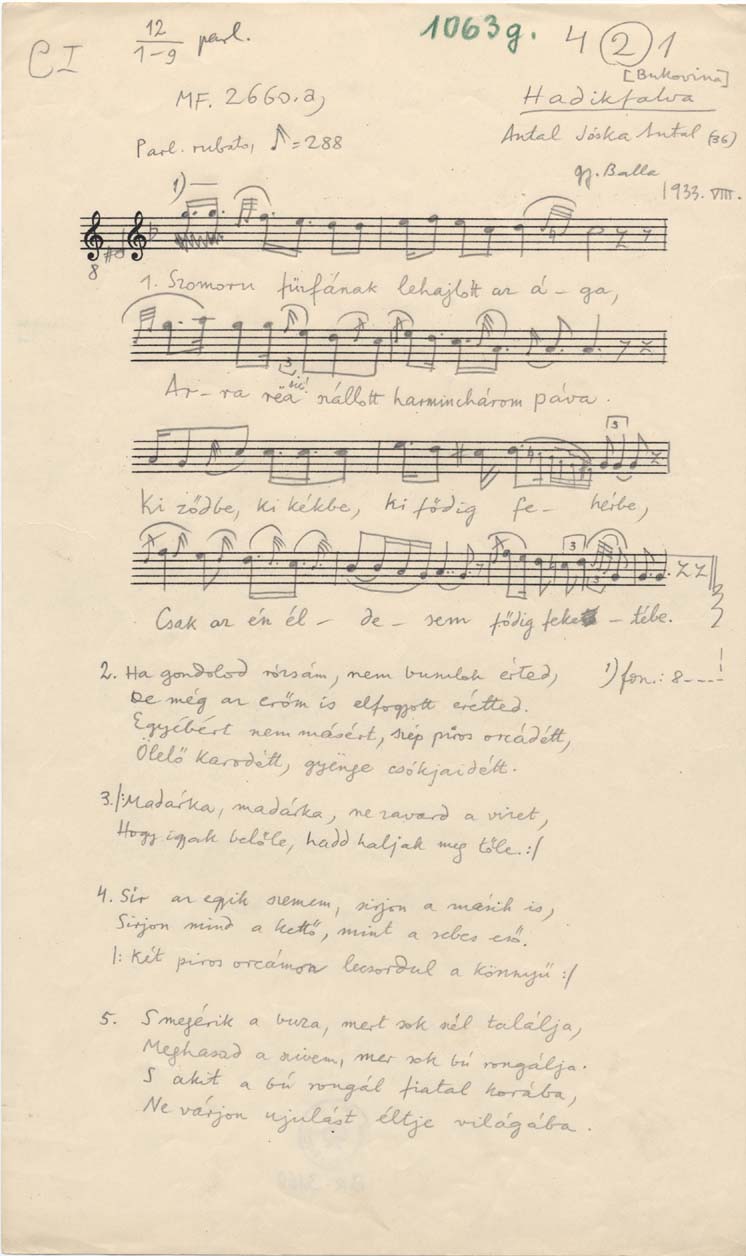 C I
12
1-9 parl.
1063g.
4 (2) 1
[Bukovina]
MF. 2660.a,
Hadikfalva
Parl. rubato, ♪=288
Antal Jóska Antal (36)
gy. Balla
1933. VIII.
1)
8
1. Szomoru fűzfának lehajlott az á - ga,
3
sic!
Ar - ra réa szállott harminchárom páva.
3
Ki ződbe, ki kékbe, ki fődig fe - hérbe,
3
3
Csak az én él - de - sem fődig feke - tébe.
2. Ha gondolod rózsám, nem busulok érted,
1) fon.: 8----
De még az erőm is elfogyott éretted.
Egyébért nem másért, szép piros orcádétt,
Ölelő karodétt, gyönge csókjaidétt.
3. /: Madárka, madárka, ne zavard a vizet,
Hogy igyak belőle, hadd haljak meg tőle. :/
4. Sír az egyik szemem, sirjon a másik is,
Sirjon mind a kettő, mint a sebes eső.
/: Két piros orcámon lecsordul a könnyű :/
5. S megérik a buza, mert sok szél találja,
Meghasad a szivem, mer sok bú rongálja.
S akit a bú rongál fiatal korába,
Ne várjon ujulást éltje világába.